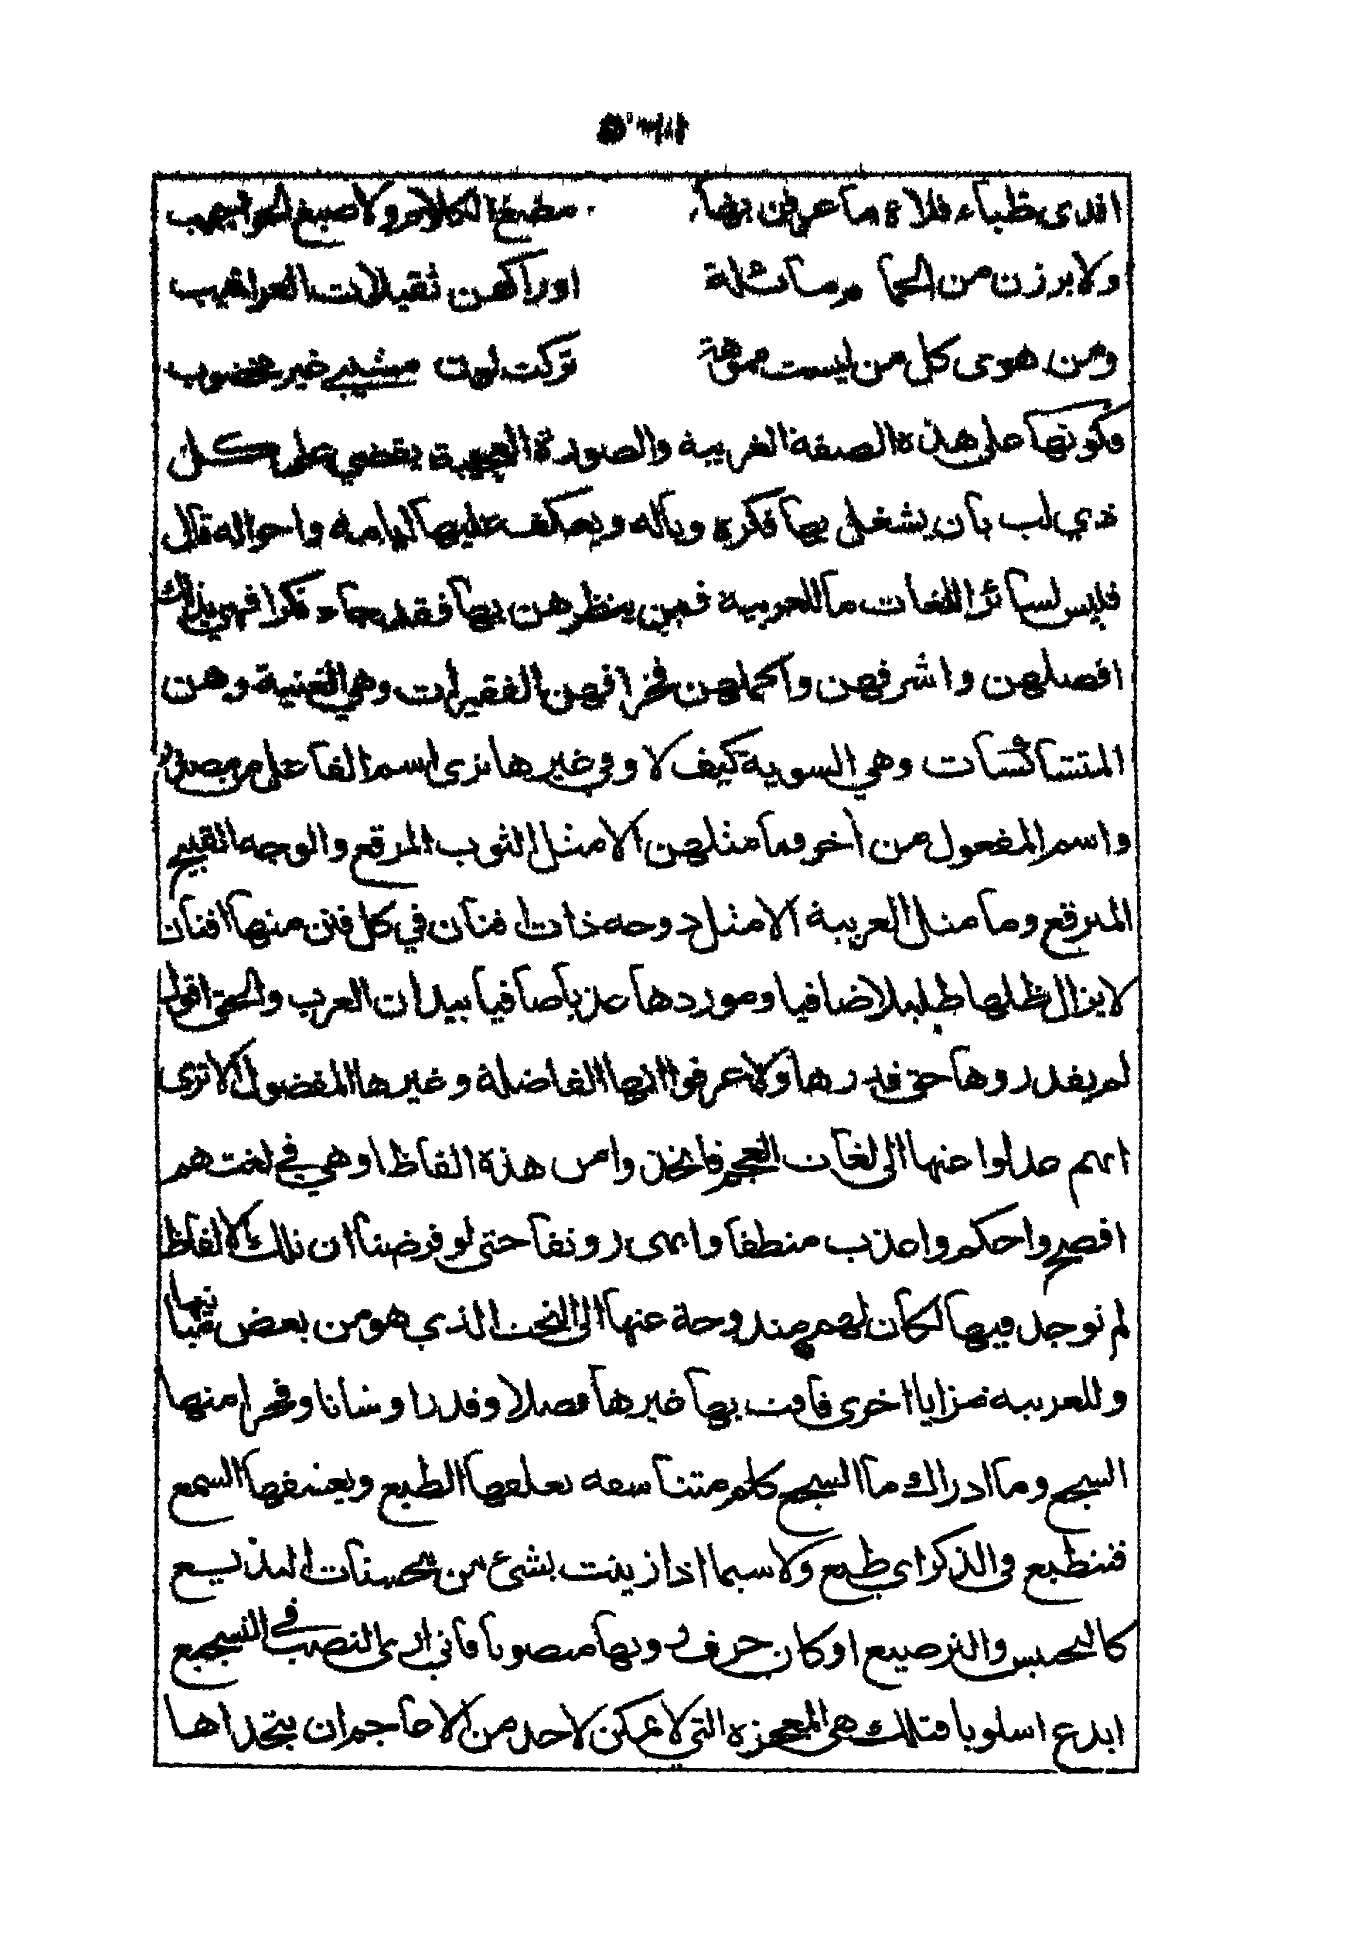 افدى ظباء فلاة ما عرفن بها مضغ الكلام ولا صبغ الحواجيب
ولا برزن من الحمام ماثلة اوراكهن ثقيلات العراقيب
ومن هوى كل من ليست مموهة تركت لون مشيبي غير مخضوب
وكونها على هذه الصفة الغريبة والصورة العجيبة يقضي على كل
ذي لب بان يشغل بها فكره وباله ويعكف عليها ايامه واحواله قال
فليس لسائر اللغات ما للعربية فمن ينظرهن بها فقد جاء نكرا فهي بذلك
افضلهن واشرفهن واكملهن فخرا فهن الفقيرات وهي الغنية وهن
المتشاكسات وهي السوية كيف لا وفي غيرها نرى اسم الفاعل من مصدر
واسم المفعول من آخر وما مثلهن الا مثل الثوب المرقع والوجه القبيح
المبرقع وما مثل العربية الا مثل دوحه ذات افنان في كل فنن منها افنان
لا يزال ظلها ظليلا ضافيا وموردها عذبا صافيا بيد ان العرب والحق اقول
لم يقدروها حق قدرها ولا عرفوا انها الفاضلة وغيرها المفضول الا ترى
انهم عدلوا عنها الى لغات العجم فاتخذوا من هذه الفاظا وهي في لغتهم
افصح واحكم واعذب منطقا وابهى رونقا حتى لو فرضنا ان تلك الالفاظ
لم توجد فيها لكان لهم مندوحة عنها الى النحت الذي هو من بعض
وللعربيه مزايا اخرى فاقت بها غيرها فضلا وقدرا وشانا وفخرا منها
السجع وما ادراك ما السجع كلم متناسقه تعلقها الطبع ويعشقها السمع
فتنطبع في الذكر اى طبع ولا سيما اذا زينت بشئ من محسنات البديع
كالتجنيس والترصيع او كان حرف رويها منصوبا فاني ارى النصب في التسجيع
ابدع اسلوبا فتلك هي المعجزه التي لا يمكن لاحد من الاعاجم ان يتحداها